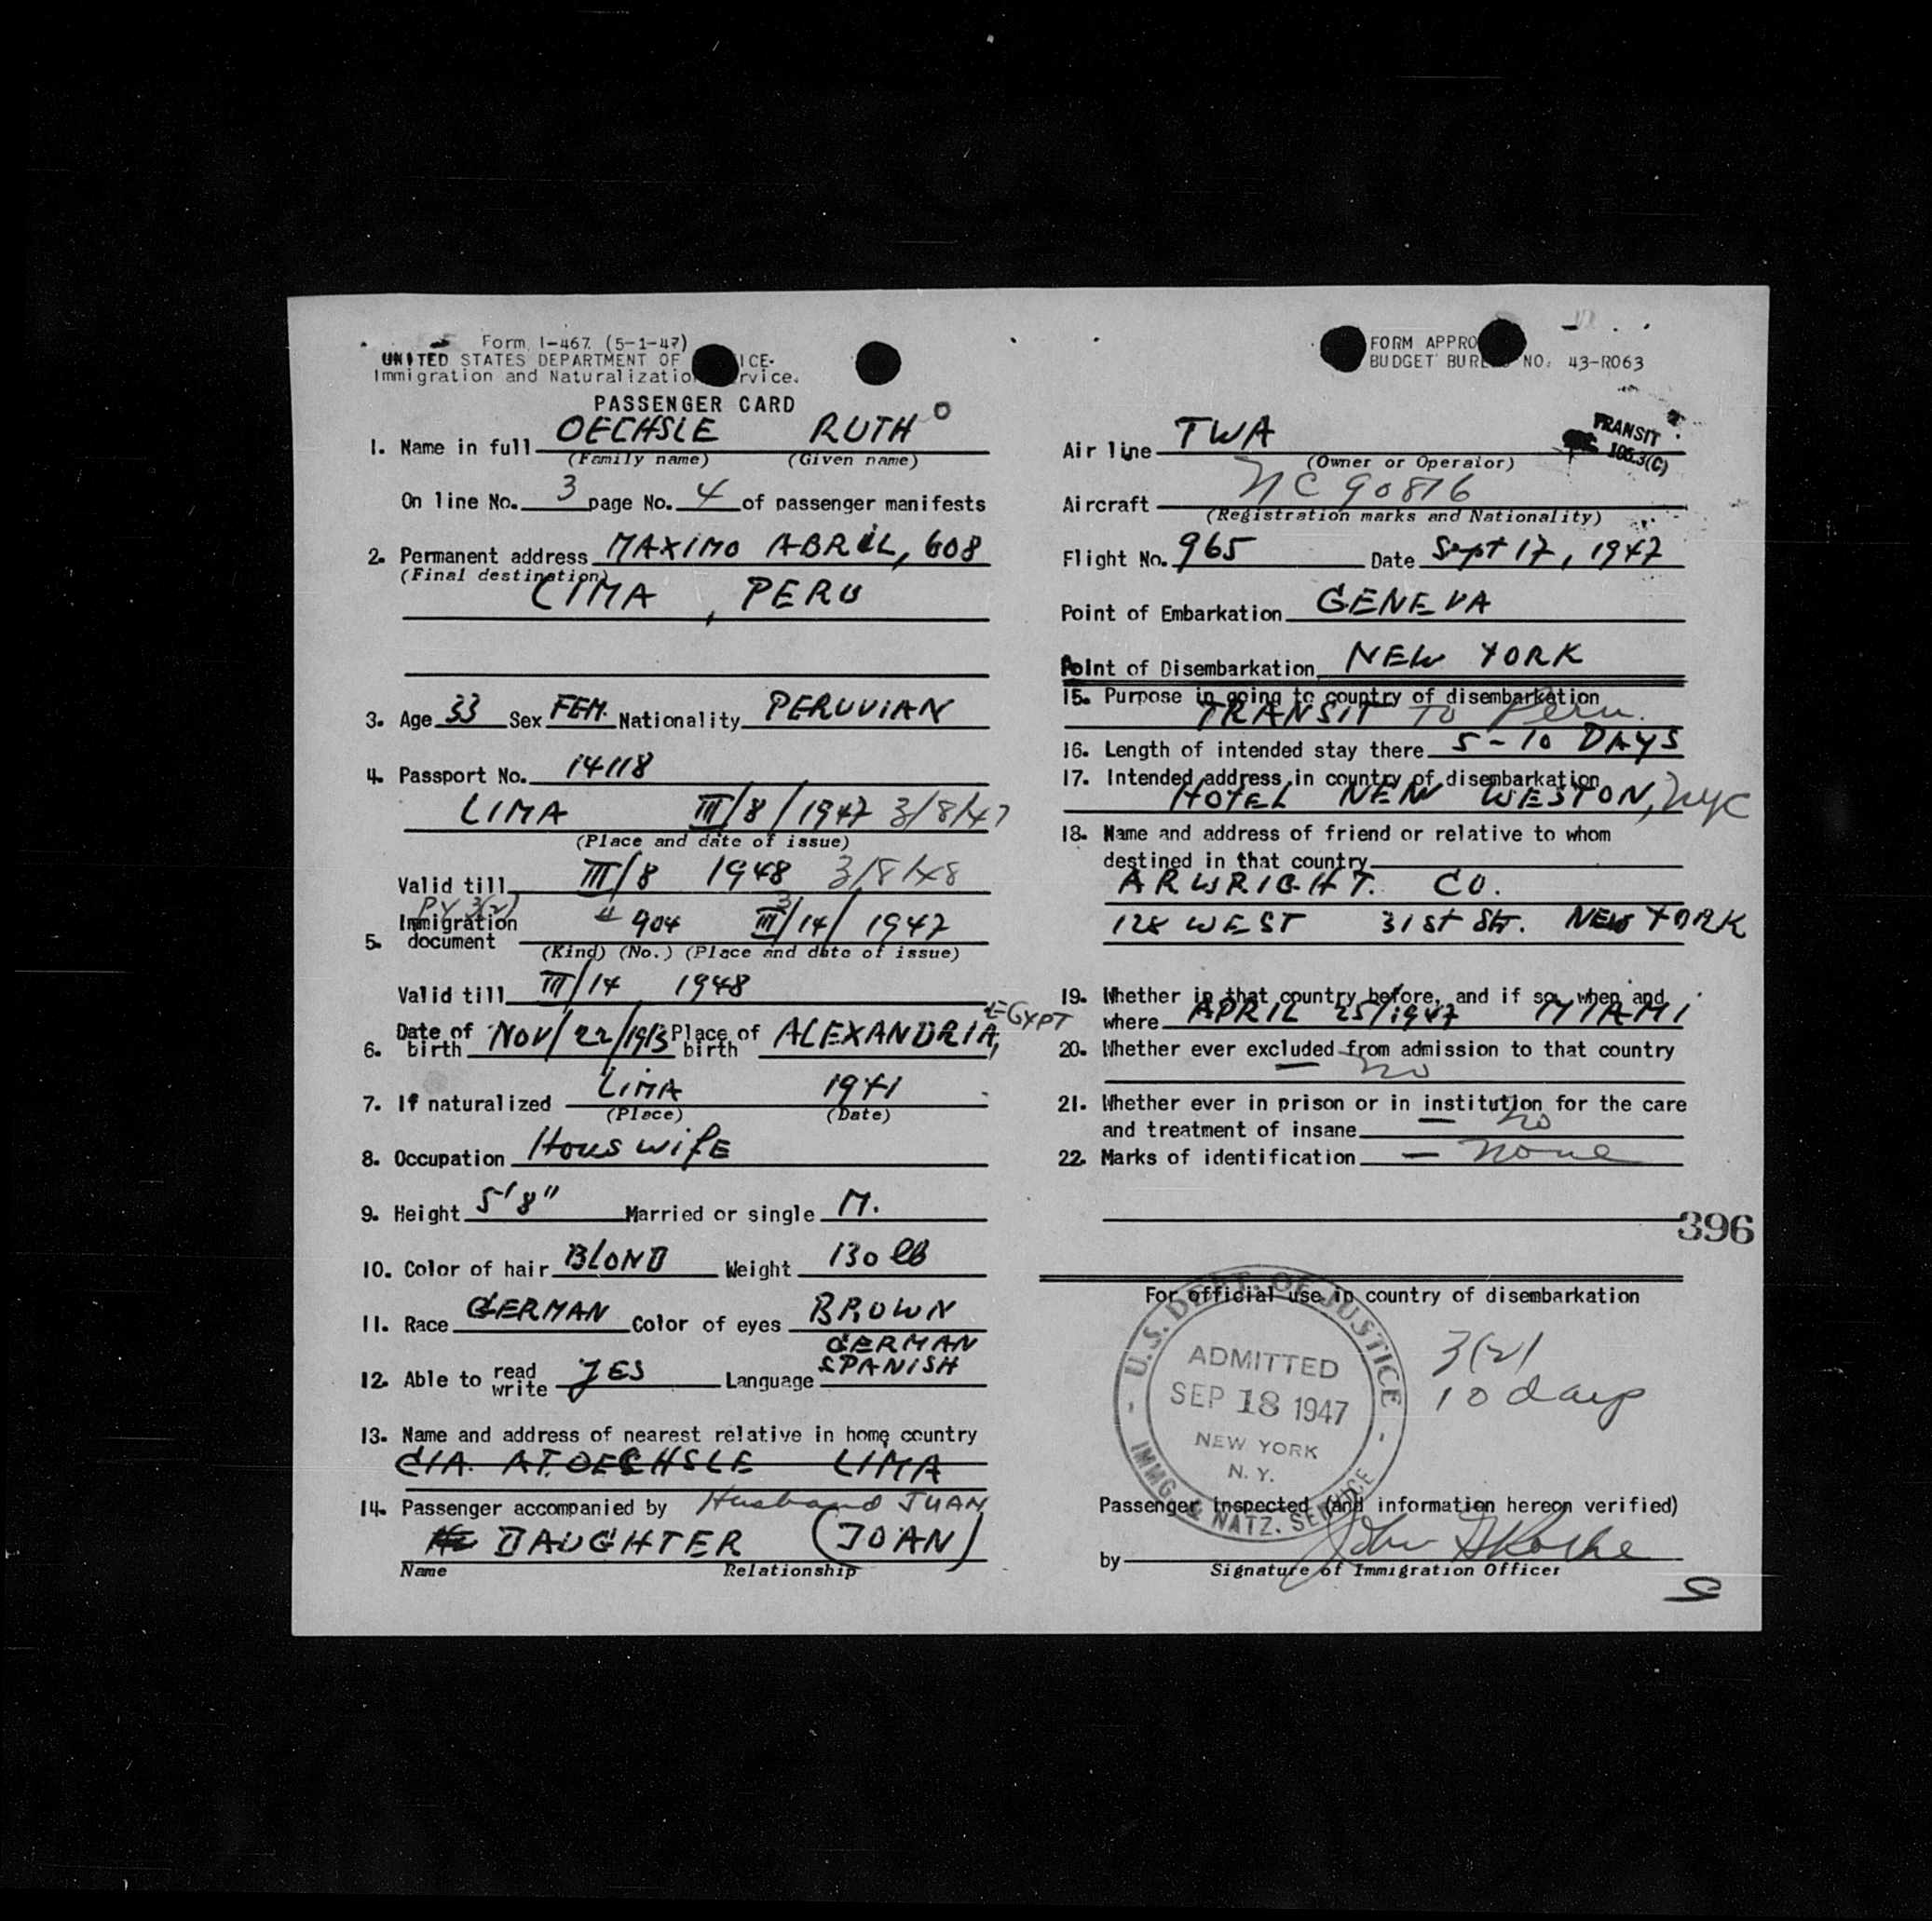 Form I-467 (5-1-47)
UNITED STATES DEPARTMENT OF ICE
Immigration and Naturalization rvice.
PASSENGER CARD
1. Name in full OECHSLE RUTH
(Family name) (Given name)
On line No. 3 page No. 4 of passenger manifests
2. Permanent address MAXIMO ABRIL, 608
(Final destination)
LIMA, PERU
3. Age 33 Sex FEM. Nationality PERUVIAN
4. Passport No. 14118
LIMA III/8/1947 3/8/47
(Place and date of issue)
Valid till III/8 1948 3/8/48
PV 3(2)
5. Immigration document # 904 III/14/1947
3
(Kind) (No.) (Place and date of issue)
Valid till III/14 1948
6. Date of birth NOV/22/1913 Place of birth ALEXANDRIA, EGYPT
7. If naturalized LIMA 1941
(Place) (Date)
8. Occupation HousWifE
9. Height 5'8" Married or single M.
10. Color of hair BLOND Weight 130 lb
11. Race GERMAN Color of eyes BROWN
12. Able to read write YES Language GERMAN SPANISH
13. Name and address of nearest relative in home country
CIA. AT. OECHSLE LIMA
14. Passenger accompanied by Husband JUAN
DAUGHTER (JOAN)
Name Relationship
FORM APPRO
BUDGET BURE NO. 43-R063
TRANSIT
106.3(C)
Air line TWA
(Owner or Operator)
Aircraft NC 90816
(Registration marks and Nationality)
Flight No. 965 Date Sept 17, 1947
Point of Embarkation GENEVA
Point of Disembarkation NEW YORK
15. Purpose in going to country of disembarkation
TRANSIT TO Peru.
16. Length of intended stay there 5-10 DAYS
17. Intended address in country of disembarkation
HOTEL NEW WESTON, NYC
18. Name and address of friend or relative to whom
destined in that country
ARWRIGHT. CO.
128 WEST 31 St Str. NEW YORK
19. Whether in that country before, and if so, when and
where APRIL 25/1947 MIAMI
20. Whether ever excluded from admission to that country
no
21. Whether ever in prison or in institution for the care
and treatment of insane no
22. Marks of identification - none
396
For official use in country of disembarkation
U.S. DEPT. OF JUSTICE
ADMITTED
SEP 18 1947
NEW YORK
N. Y.
IMMG. & NATZ. SERVICE
3(2)
10 days
Passenger inspected (and information hereon verified)
by John
Signature of Immigration Officer